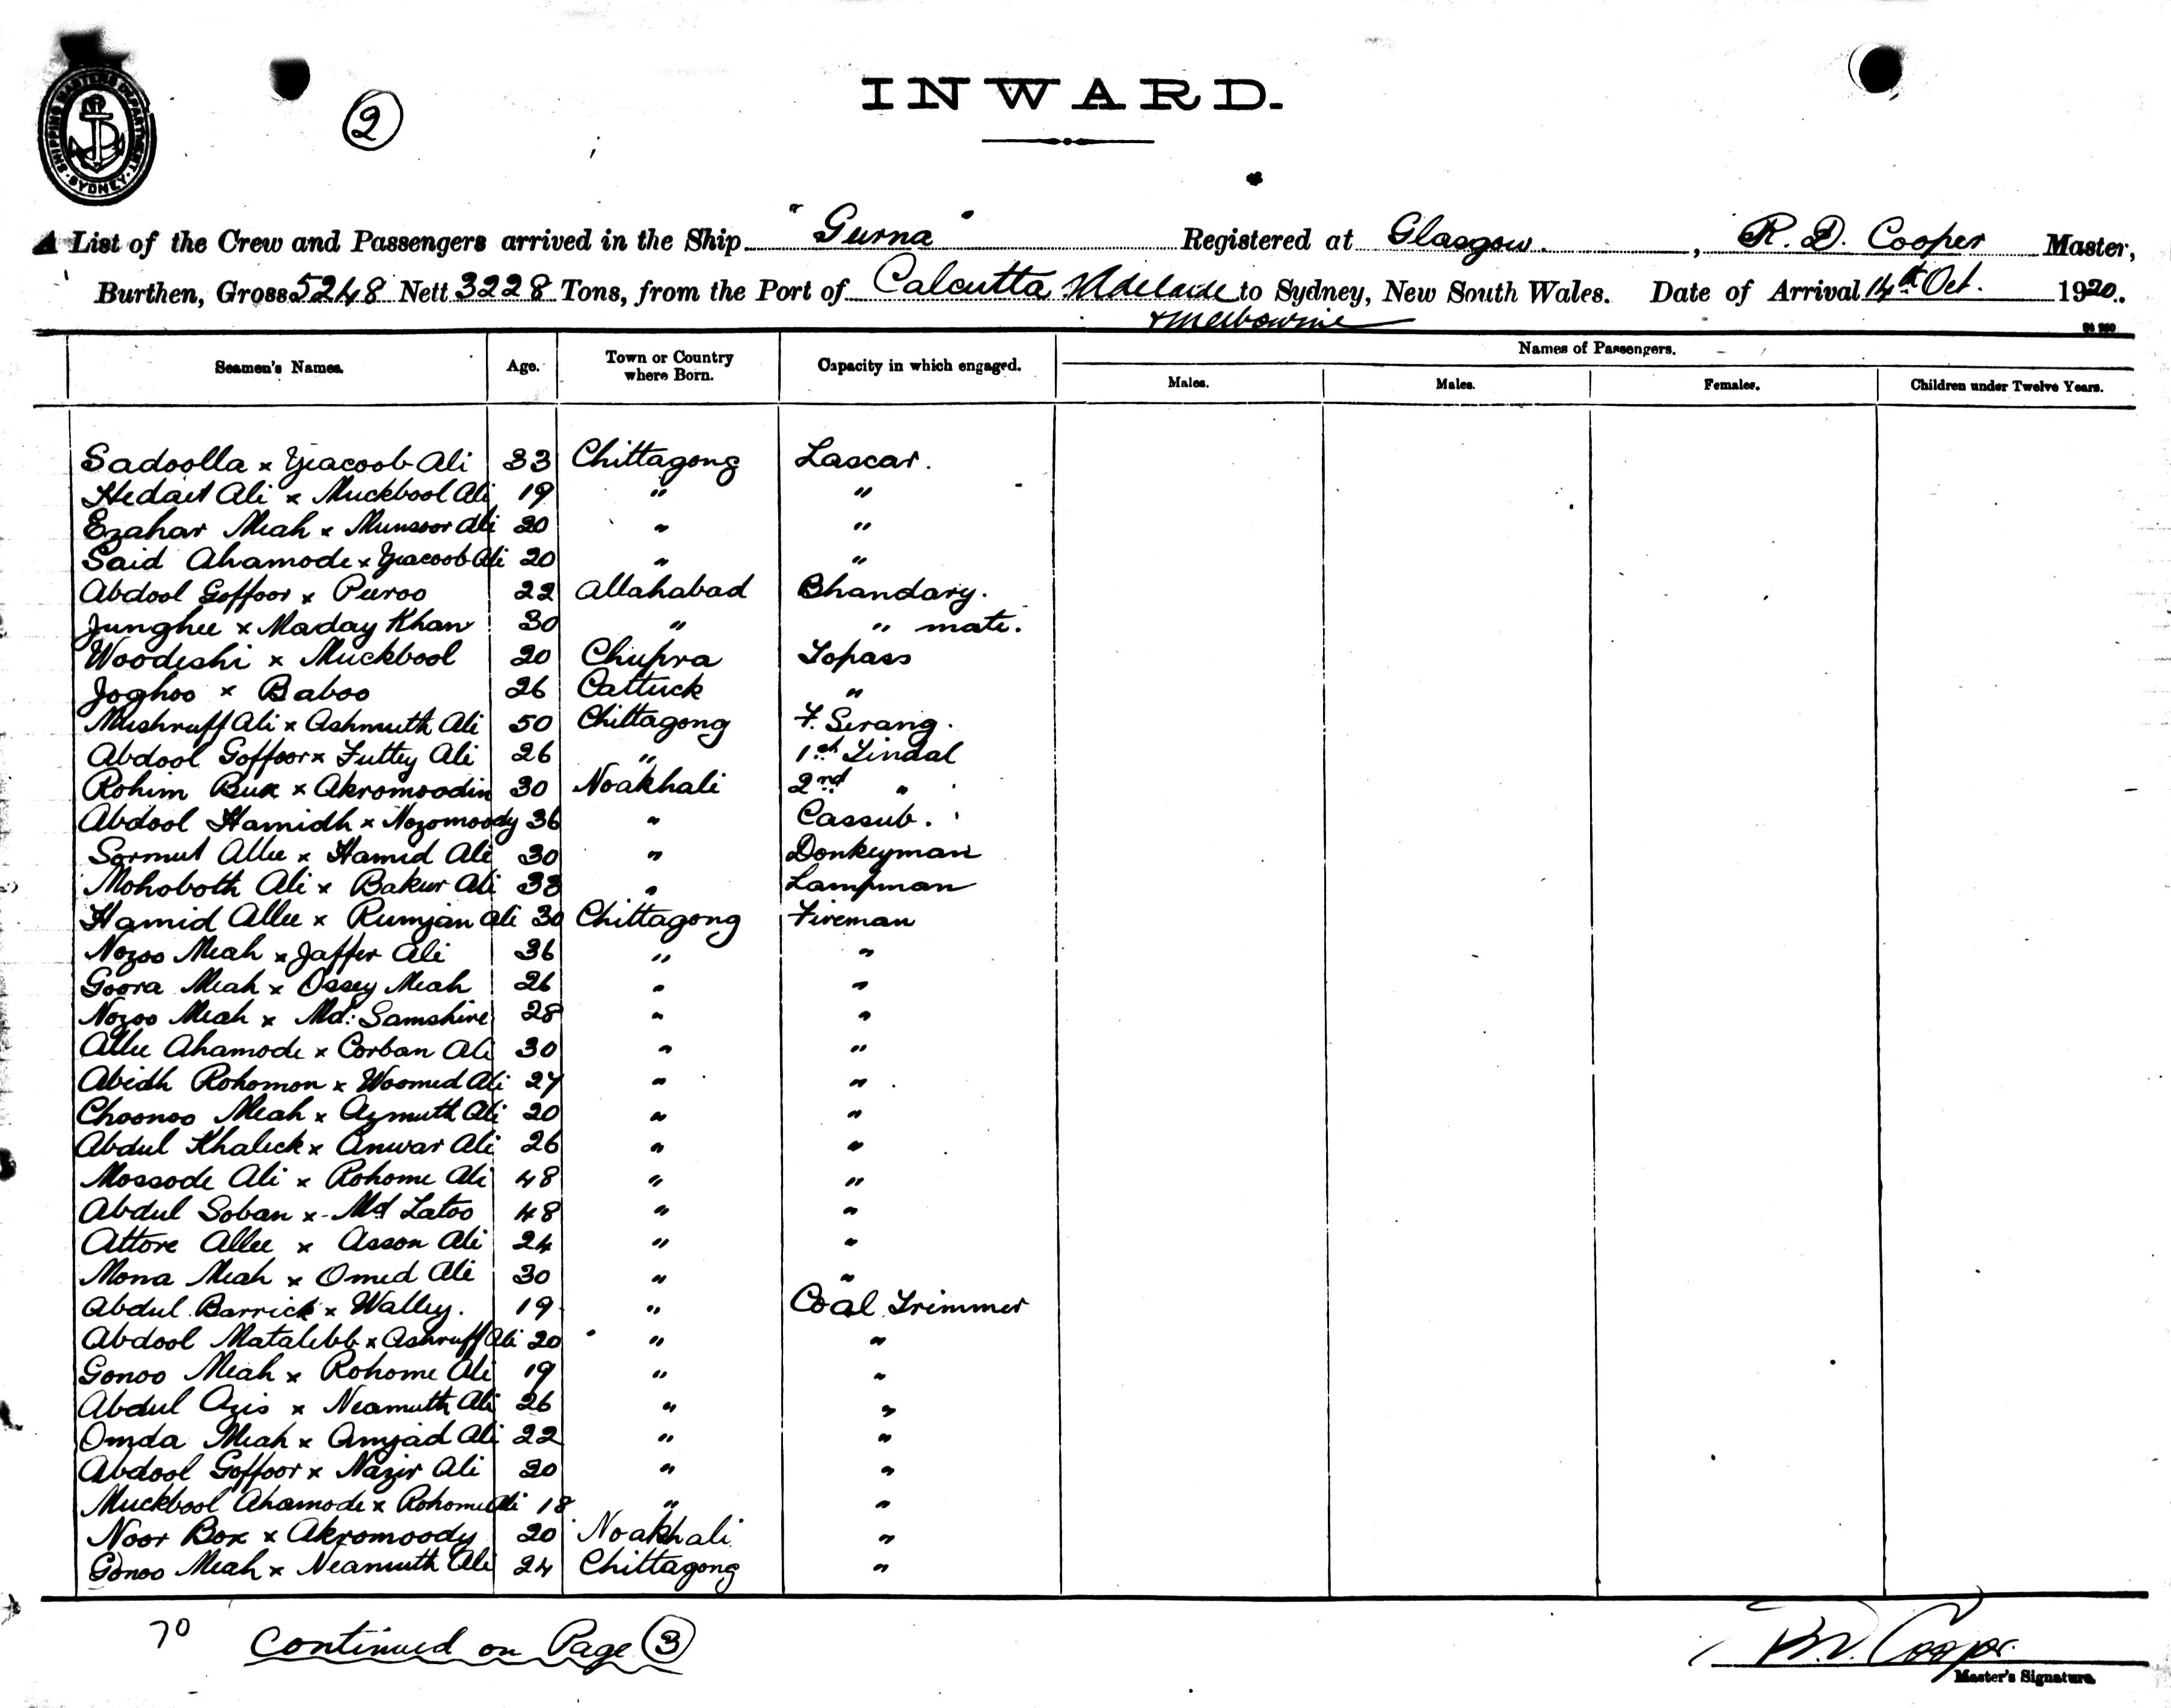 SHIPPING MASTER'S DEPARTMENT SYDNEY
2
INWARD.
A List of the Crew and Passengers arrived in the Ship "Gurna" Registered at Glasgow, R. D. Cooper Master,
Burthen, Gross 5248 Nett 3228 Tons, from the Port of Calcutta Adelaide to Sydney, New South Wales. Date of Arrival 14th Oct. 1920.
& Melbourne
Seamen's Names. Age. Town or Country where Born. Capacity in which engaged. Names of Passengers.
Males. Males. Females. Children under Twelve Years.
Sadoolla x Yacoob Ali 33 Chittagong Lascar.
Hedait Ali x Muckbool Ali 19 " "
Ezahar Meah x Munsoor Ali 20 " "
Said Ahamode x Yacoob Ali 20 " "
Abdool Goffoor x Peeroo 22 Allahabad Bhandary.
Junghee x Maday Khan 30 " " mate.
Woodeshi x Muckbool 20 Chupra Topass
Joghoo x Baboo 26 Cattuck "
Mushruff Ali x Ashmuth Ali 50 Chittagong F. Serang.
Abdool Goffoor x Futtey Ali 26 " 1st Tindal
Rohim Bux x Akromoodin 30 Noakhali 2nd "
Abdool Hamidh x Nozomoody 36 " Cassub.
Sormut Allee x Hamid Ali 30 " Donkeyman
Mohoboth Ali x Bakur Ali 38 " Lampman
Hamid Allee x Rumjan Ali 30 Chittagong Fireman
Nozoo Meah x Jaffer Ali 36 " "
Goora Meah x Ossey Meah 26 " "
Nozoo Meah x Md: Samshire 28 " "
Allee Ahamode x Corban Ali 30 " "
Abidh Rohomon x Woomed Ali 27 " "
Choonoo Meah x Azmuth Ali 20 " "
Abdul Khaleck x Anwar Ali 26 " "
Mossode Ali x Rohome Ali 48 " "
Abdul Soban x Md Latoo 48 " "
Attore Allee x Asson Ali 24 " "
Mona Meah x Omed Ali 30 " "
Abdul Barrick x Walley. 19 " Coal Trimmer
Abdool Matalebb x Ashruff Ali 20 " "
Gonoo Meah x Rohome Ali 19 " "
Abdul Azis x Neamuth Ali 26 " "
Omda Meah x Amjad Ali 22 " "
Abdool Goffoor x Nazir Ali 20 " "
Muckbool Ahamode x Rohome Ali 18 " "
Noor Box x Akromoody 20 Noakhali "
Gonoo Meah x Neamuth Ali 24 Chittagong "
70 Continued on Page 3
R. D. Cooper
Master's Signature.